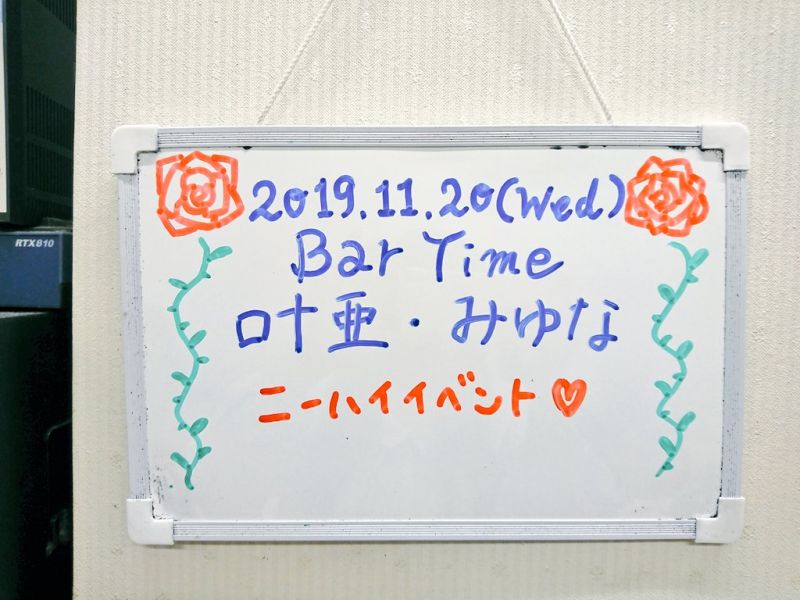 RTX810
2019.11.20(Wed)
Bar Time
叶亜・みゆな
ニーハイイベント♡